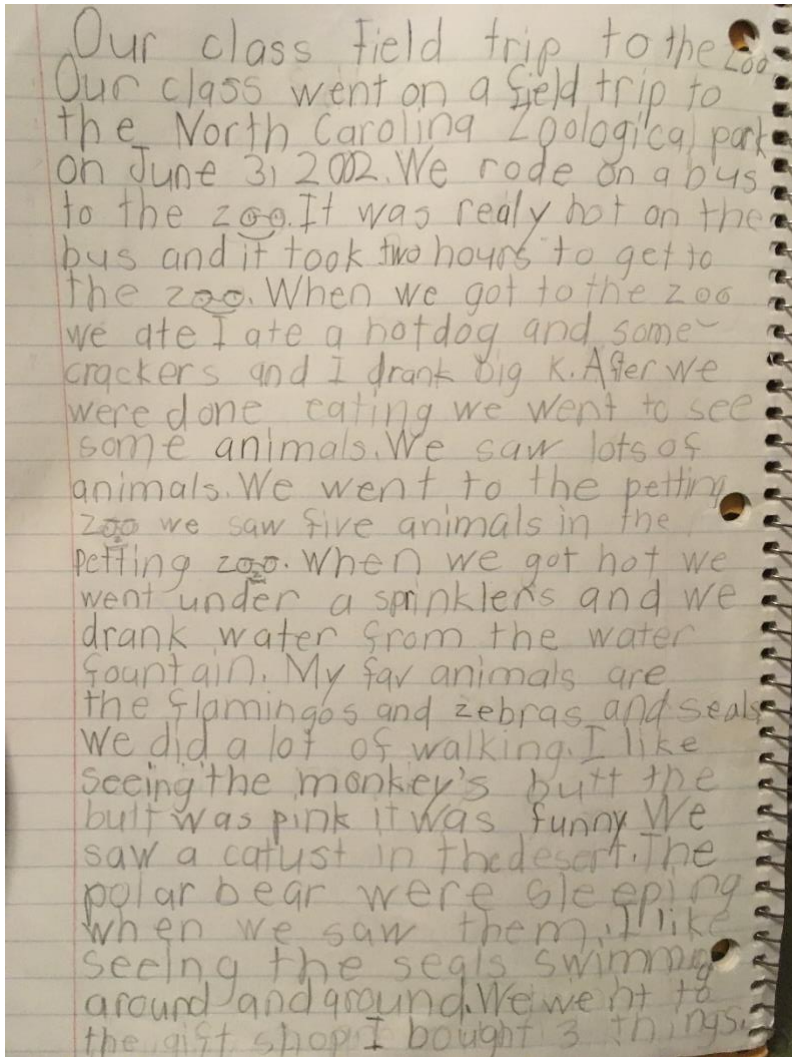 Our class field trip to the zoo
Our class went on a field trip to
the North Carolina Zoological park
on June 3, 2002. We rode on a bus
to the zoo. It was realy hot on the
bus and it took two hours to get to
the zoo. When we got to the zoo
we ate I ate a hotdog and some
crackers and I drank big K. After we
were done eating we went to see
some animals. We saw lots of
animals. We went to the petting
zoo we saw five animals in the
petting zoo. When we got hot we
went under a sprinklers and we
drank water from the water
fountain. My fav animals are
the flamingos and zebras and seals
We did a lot of walking. I like
seeing the monkey's butt the
butt was pink it was funny We
saw a catust in the desert. The
polar bear were sleeping
when we saw them. I like
seeing the seals swimming
around and around. We went to
the gift shop I bought 3 things.